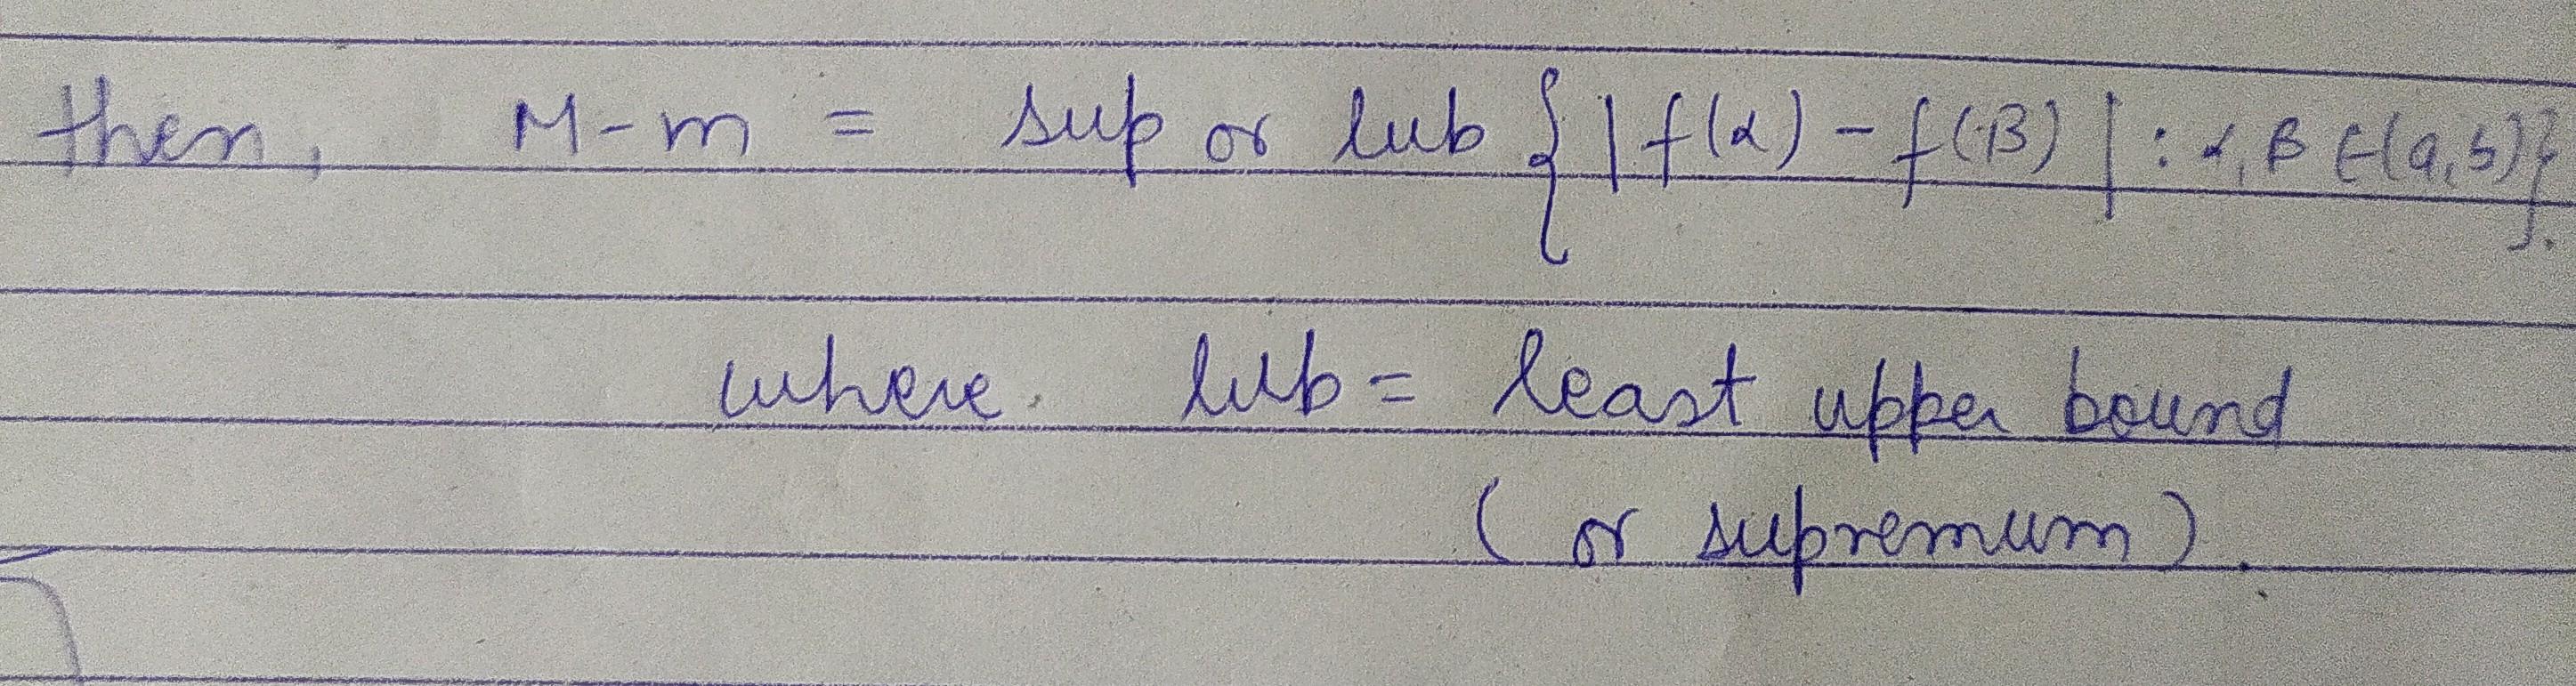 then, M-m = sup or lub { | f(α) - f(β) | : α, β ∈ (a, b) }.
where lub = least upper bound
( or supremum ).